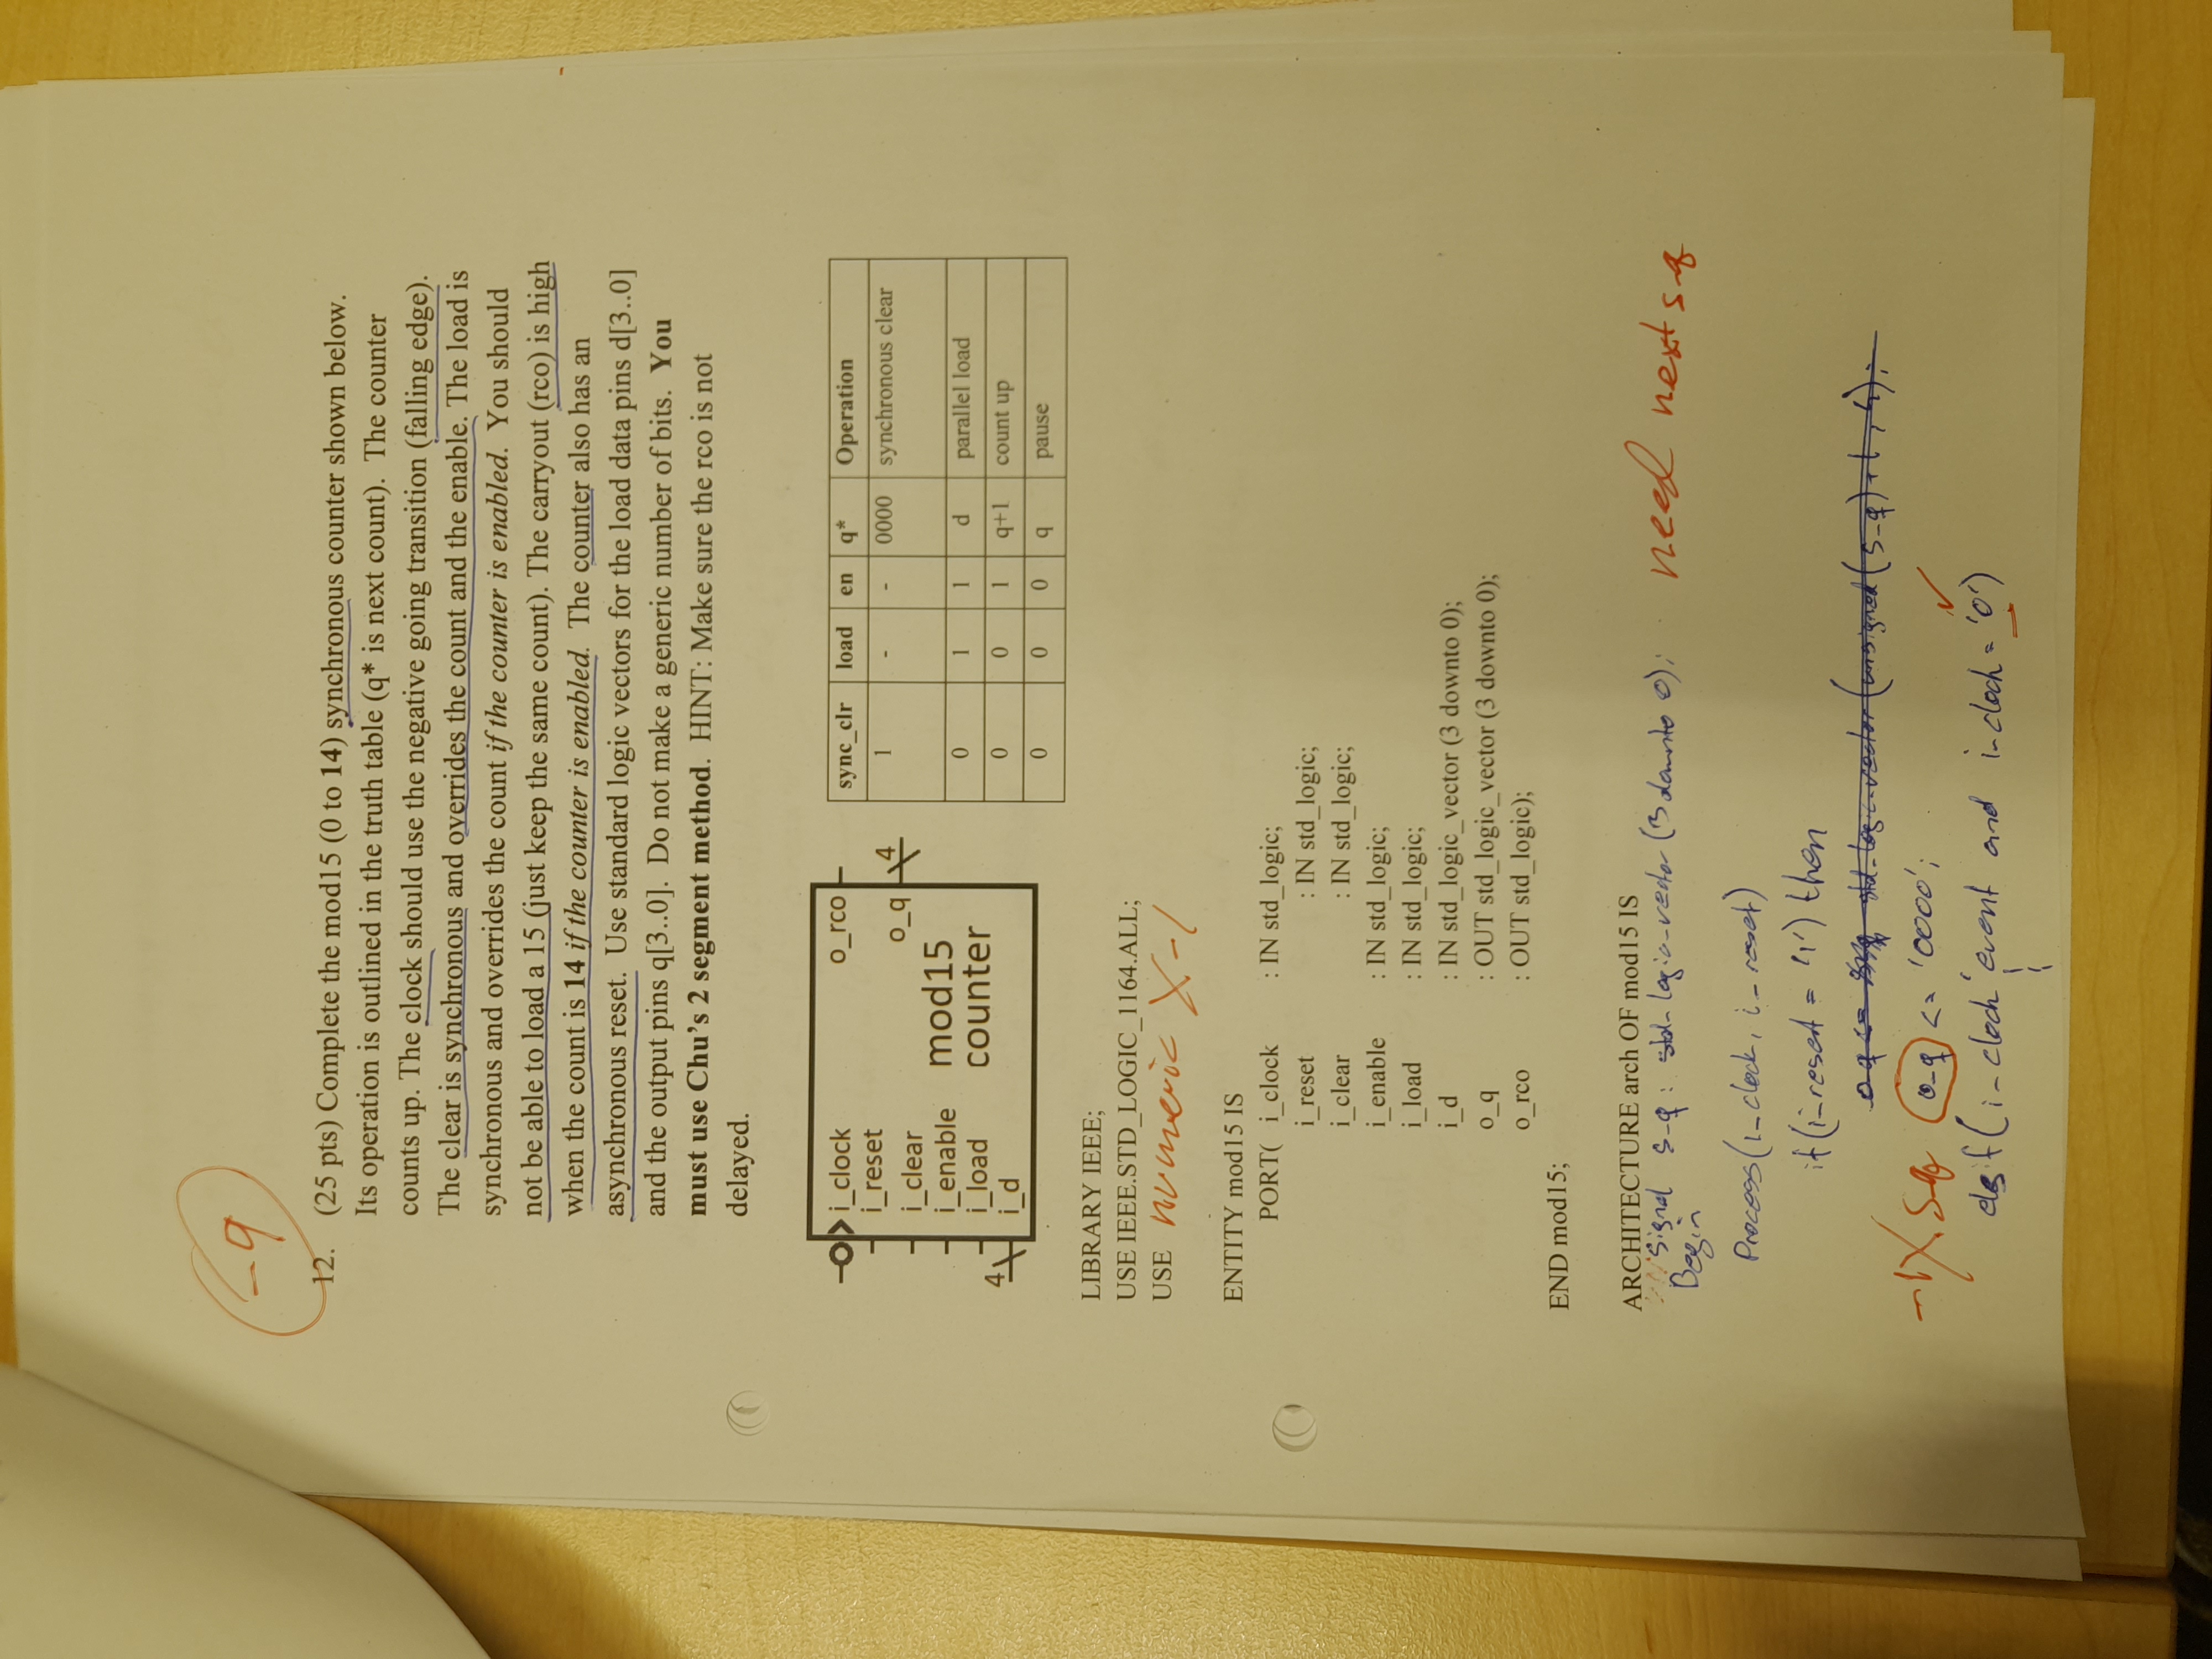 -9
12. (25 pts) Complete the mod15 (0 to 14) synchronous counter shown below.
Its operation is outlined in the truth table (q* is next count). The counter
counts up. The clock should use the negative going transition (falling edge).
The clear is synchronous and overrides the count and the enable. The load is
synchronous and overrides the count if the counter is enabled. You should
not be able to load a 15 (just keep the same count). The carryout (rco) is high
when the count is 14 if the counter is enabled. The counter also has an
asynchronous reset. Use standard logic vectors for the load data pins d[3..0]
and the output pins q[3..0]. Do not make a generic number of bits. You
must use Chu's 2 segment method. HINT: Make sure the rco is not
delayed.
i_clock o_rco
i_reset
i_clear o_q 4
i_enable mod15
i_load counter
4 i_d
sync_clr load en q* Operation
1 - - 0000 synchronous clear
0 1 1 d parallel load
0 0 1 q+1 count up
0 0 0 q pause
LIBRARY IEEE;
USE IEEE.STD_LOGIC_1164.ALL;
USE numeric X -1
ENTITY mod15 IS
PORT( i_clock : IN std_logic;
i_reset : IN std_logic;
i_clear : IN std_logic;
i_enable : IN std_logic;
i_load : IN std_logic;
i_d : IN std_logic_vector (3 downto 0);
o_q : OUT std_logic_vector (3 downto 0);
o_rco : OUT std_logic);
END mod15;
ARCHITECTURE arch OF mod15 IS
Signal s_q : std_logic_vector (3 downto 0); need next s_q
Begin
Process (i_clock, i_reset)
if (i_reset = '1') then
o_q <= std_logic_vector (unsigned (s_q) + 1, 4);
-1 X s_q o_q <= '0000';
elsif (i_clock 'event and i_clock = '0')